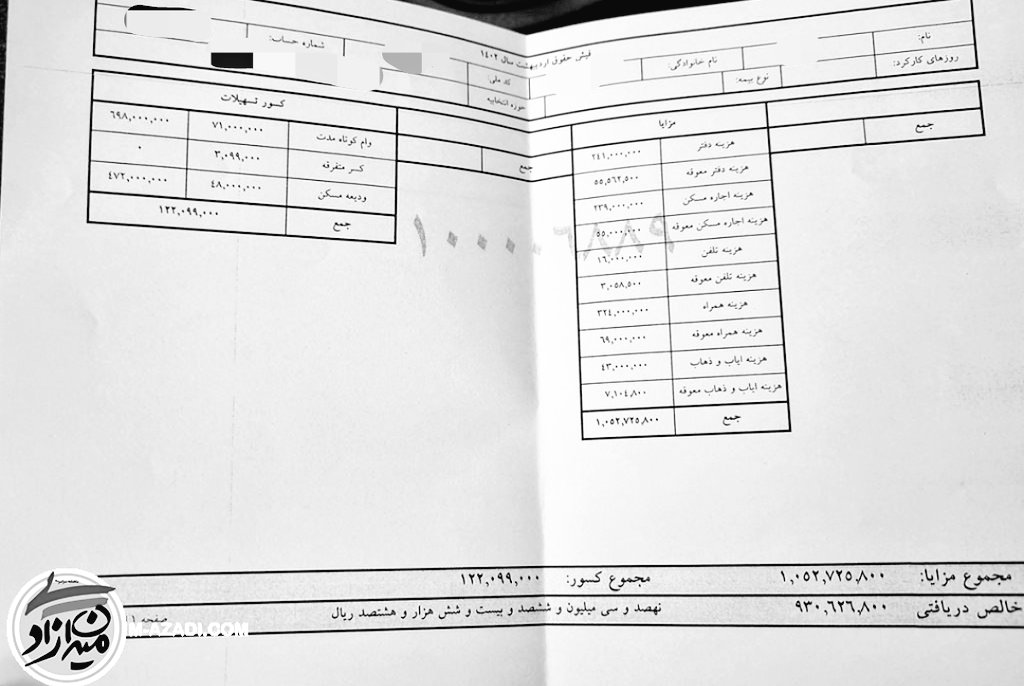 فیش حقوق اردیبهشت سال ۱۴۰۲
نام:
نام خانوادگی:
کد ملی:
شماره حساب:
روزهای کارکرد:
نوع بیمه:
حوزه انتخابیه
جمع
مزایا
هزینه دفتر ۲۴۱,۰۰۰,۰۰۰
هزینه دفتر معوقه ۵۵,۵۶۲,۵۰۰
هزینه اجاره مسکن ۲۳۹,۰۰۰,۰۰۰
هزینه اجاره مسکن معوقه ۵۵,۰۰۰,۰۰۰
هزینه تلفن ۱۶,۰۰۰,۰۰۰
هزینه تلفن معوقه ۳,۰۵۸,۵۰۰
هزینه همراه ۳۲۴,۰۰۰,۰۰۰
هزینه همراه معوقه ۶۹,۰۰۰,۰۰۰
هزینه ایاب و ذهاب ۴۳,۰۰۰,۰۰۰
هزینه ایاب و ذهاب معوقه ۷,۱۰۴,۸۰۰
جمع ۱,۰۵۲,۷۲۵,۸۰۰
جمع
کسور تسهیلات
وام کوتاه مدت ۷۱,۰۰۰,۰۰۰ ۶۹۸,۰۰۰,۰۰۰
کسر متفرقه ۳,۰۹۹,۰۰۰ ۰
ودیعه مسکن ۴۸,۰۰۰,۰۰۰ ۴۷۲,۰۰۰,۰۰۰
جمع ۱۲۲,۰۹۹,۰۰۰
مجموع مزایا: ۱,۰۵۲,۷۲۵,۸۰۰ مجموع کسور: ۱۲۲,۰۹۹,۰۰۰
خالص دریافتی ۹۳۰,۶۲۶,۸۰۰ نهصد و سی میلیون و ششصد و بیست و شش هزار و هشتصد ریال
صفحه ۱
میهن آزاد
M-AZADI.COM